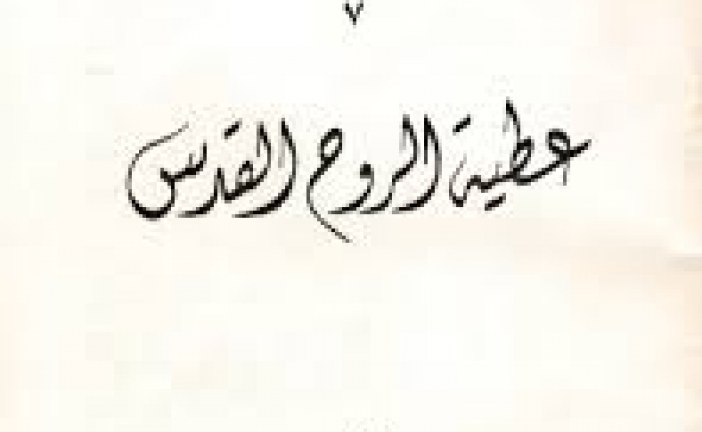 ٧
عطية الروح القدس